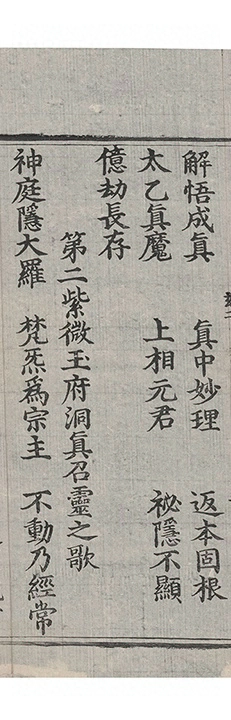 解悟成真　真中妙理　返本固根
太乙真魔　上相元君　祕隱不顯
億劫長存
第二紫微玉府洞真召靈之歌
神庭隱大羅　梵炁為宗主　不動乃經常